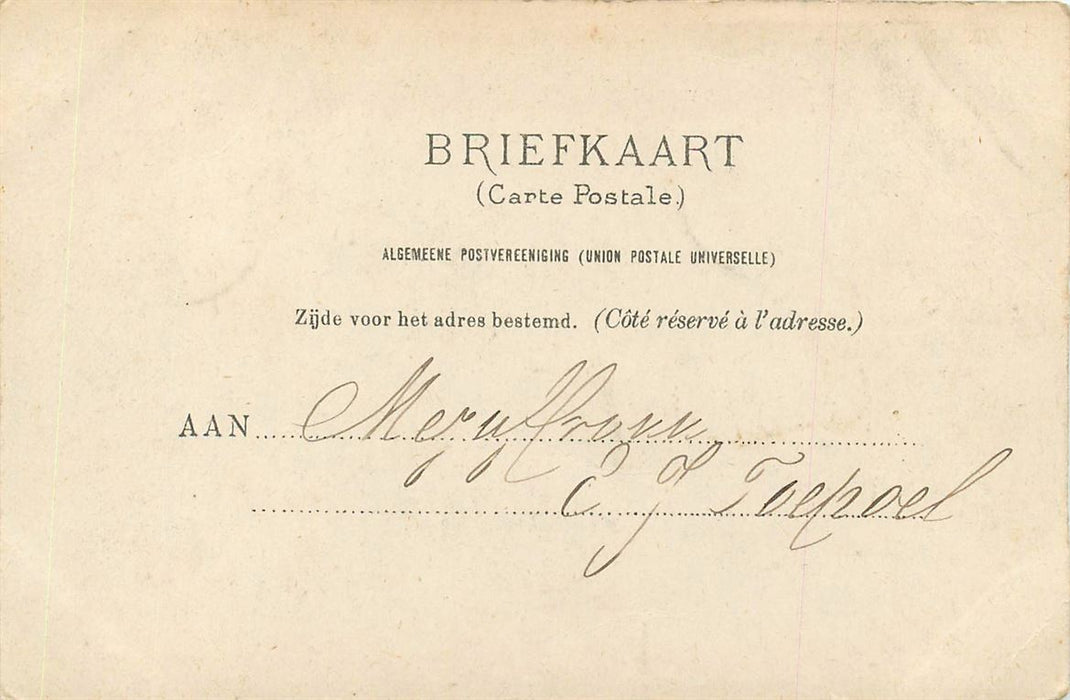 BRIEFKAART
(Carte Postale.)
ALGEMEENE POSTVEREENIGING (UNION POSTALE UNIVERSELLE)
Zijde voor het adres bestemd. (Côté réservé à l'adresse.)
AAN Mejuffrouw
C J Toepoel